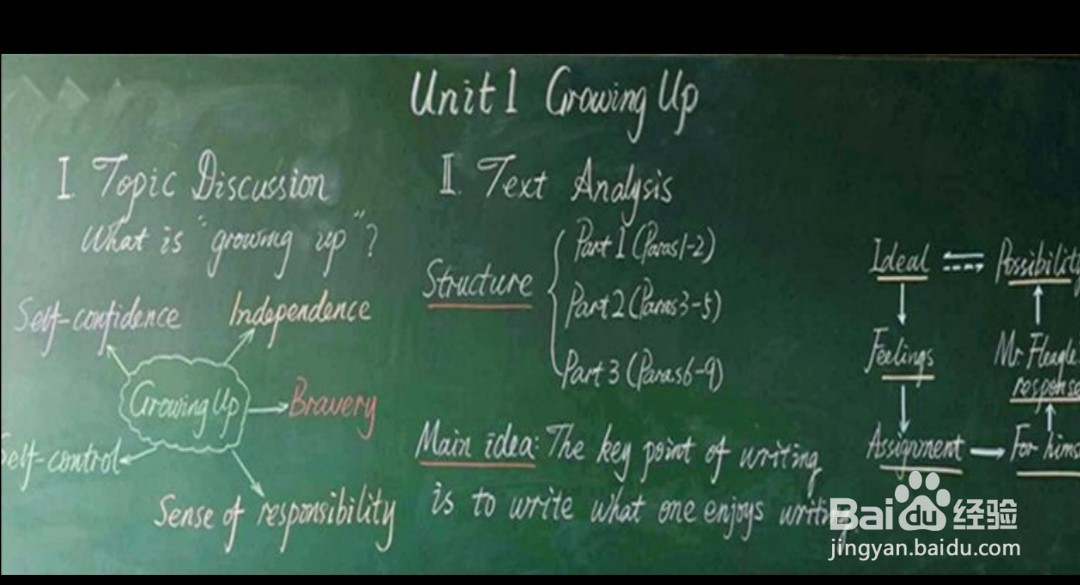 Unit 1 Growing Up
I Topic Discussion
What is "growing up"?
Self-confidence
Independence
Growing Up
Bravery
Self-control
Sense of responsibility
II. Text Analysis
Structure
Part 1 (Paras1-2)
Part 2 (Paras3-5)
Part 3 (Paras6-9)
Main idea: The key point of writing
is to write what one enjoys writing
Ideal
Possibility
Feelings
Mr. Fleagle
response
Assignment
For hims
Baidu 经验
jingyan.baidu.com